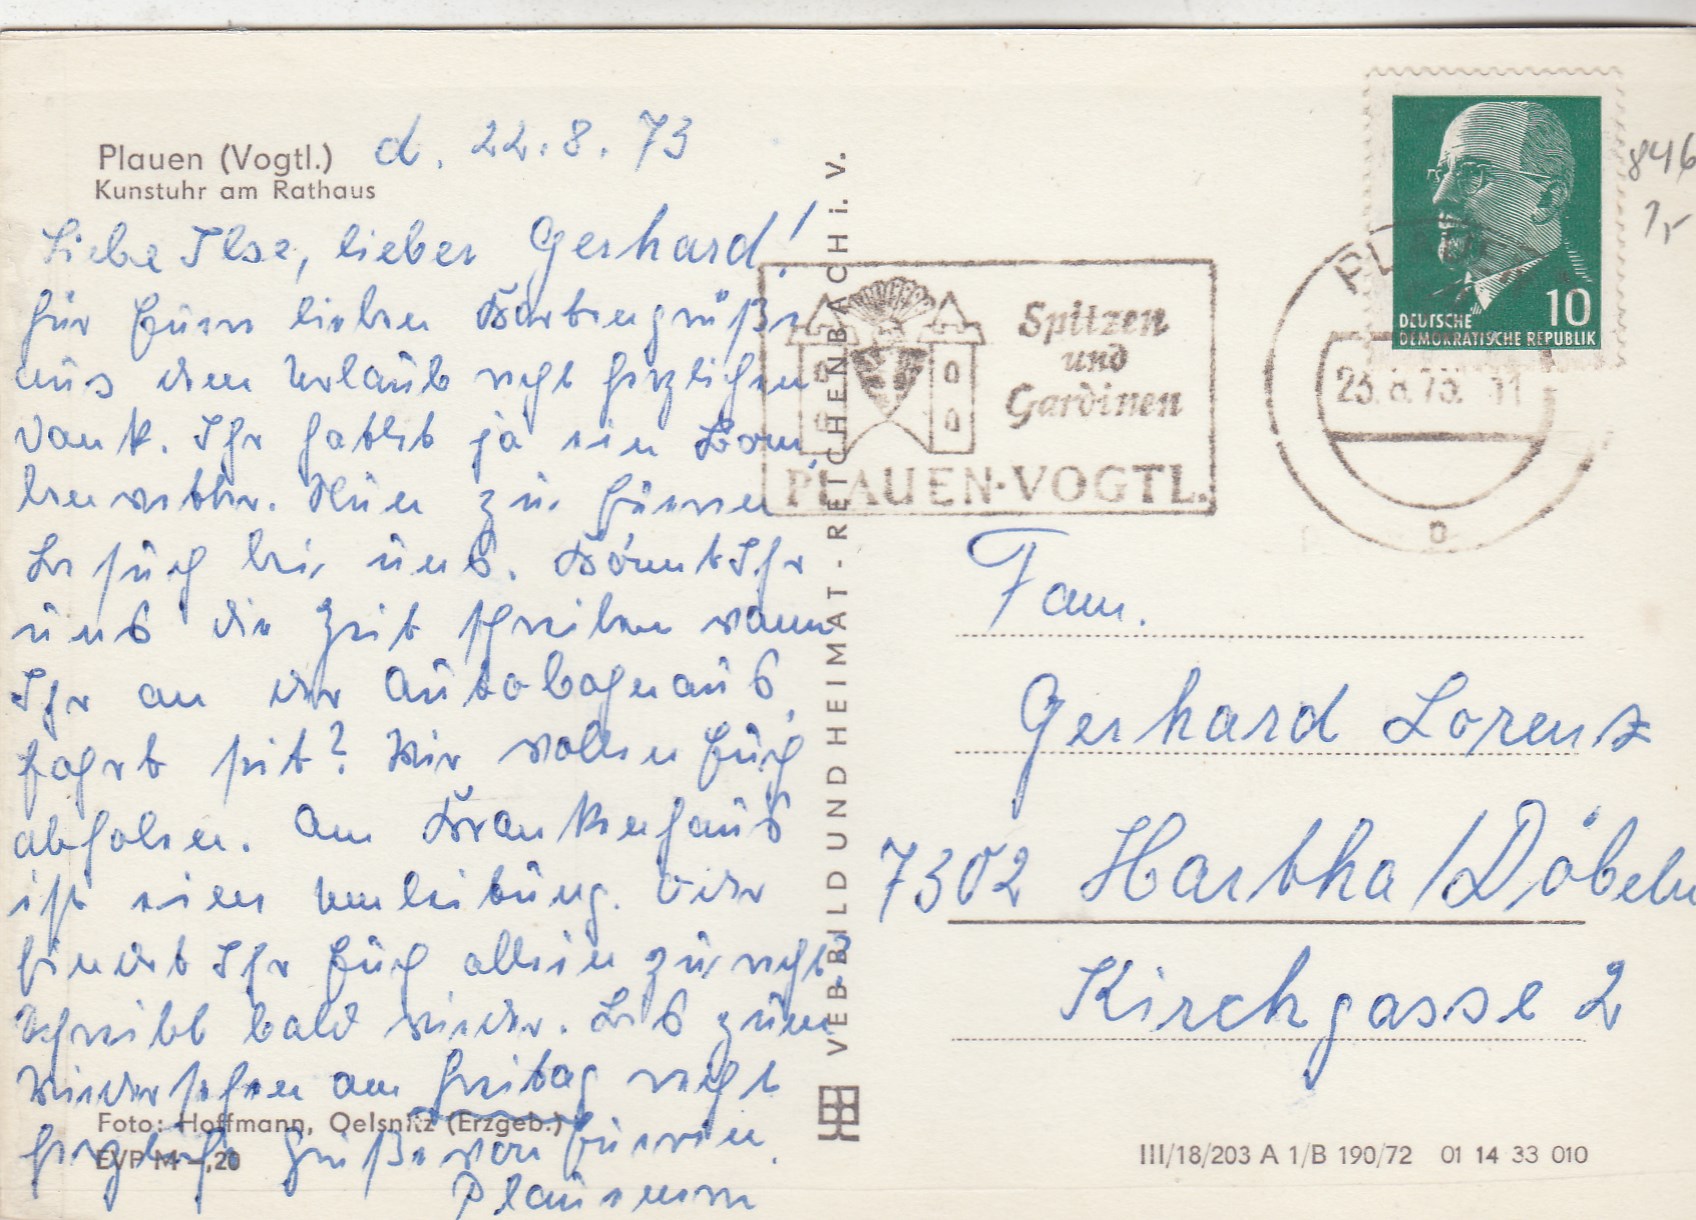 Plauen (Vogtl.) d. 22.8.73
Kunstuhr am Rathaus
Liebe Ilse, lieber Gerhard!
für Euern lieben Kartengruß
aus dem Urlaub recht herzlichen
Dank. Ihr hattet ja ein Bom,
benwetter. Nun zu Euren
Besuch bei uns. Könnt Ihr
uns die Zeit schreiben wann
Ihr an der Autobahnaus,
fahrt seit? Wir wollen Euch
abholen. Am Krankenhaus
ist eine Umleitung. Oder
findet Ihr Euch allein zurecht?
Schreibt bald wieder. Bis zum
Wiedersehen am Freitag recht
herzliche Grüße von Eueren
Plauenern
Foto: Hoffmann, Oelsnitz (Erzgeb.)
EVP M -,20
VEB BILD UND HEIMAT · REICHENBACH i. V.
Spitzen
und
Gardinen
PLAUEN·VOGTL.
PLAUEN
23.8.73. 11
DEUTSCHE
DEMOKRATISCHE REPUBLIK
10
846
1,-
Fam.
Gerhard Lorenz
7302 Hartha/Döbeln
Kirchgasse 2
III/18/203 A 1/B 190/72 01 14 33 010